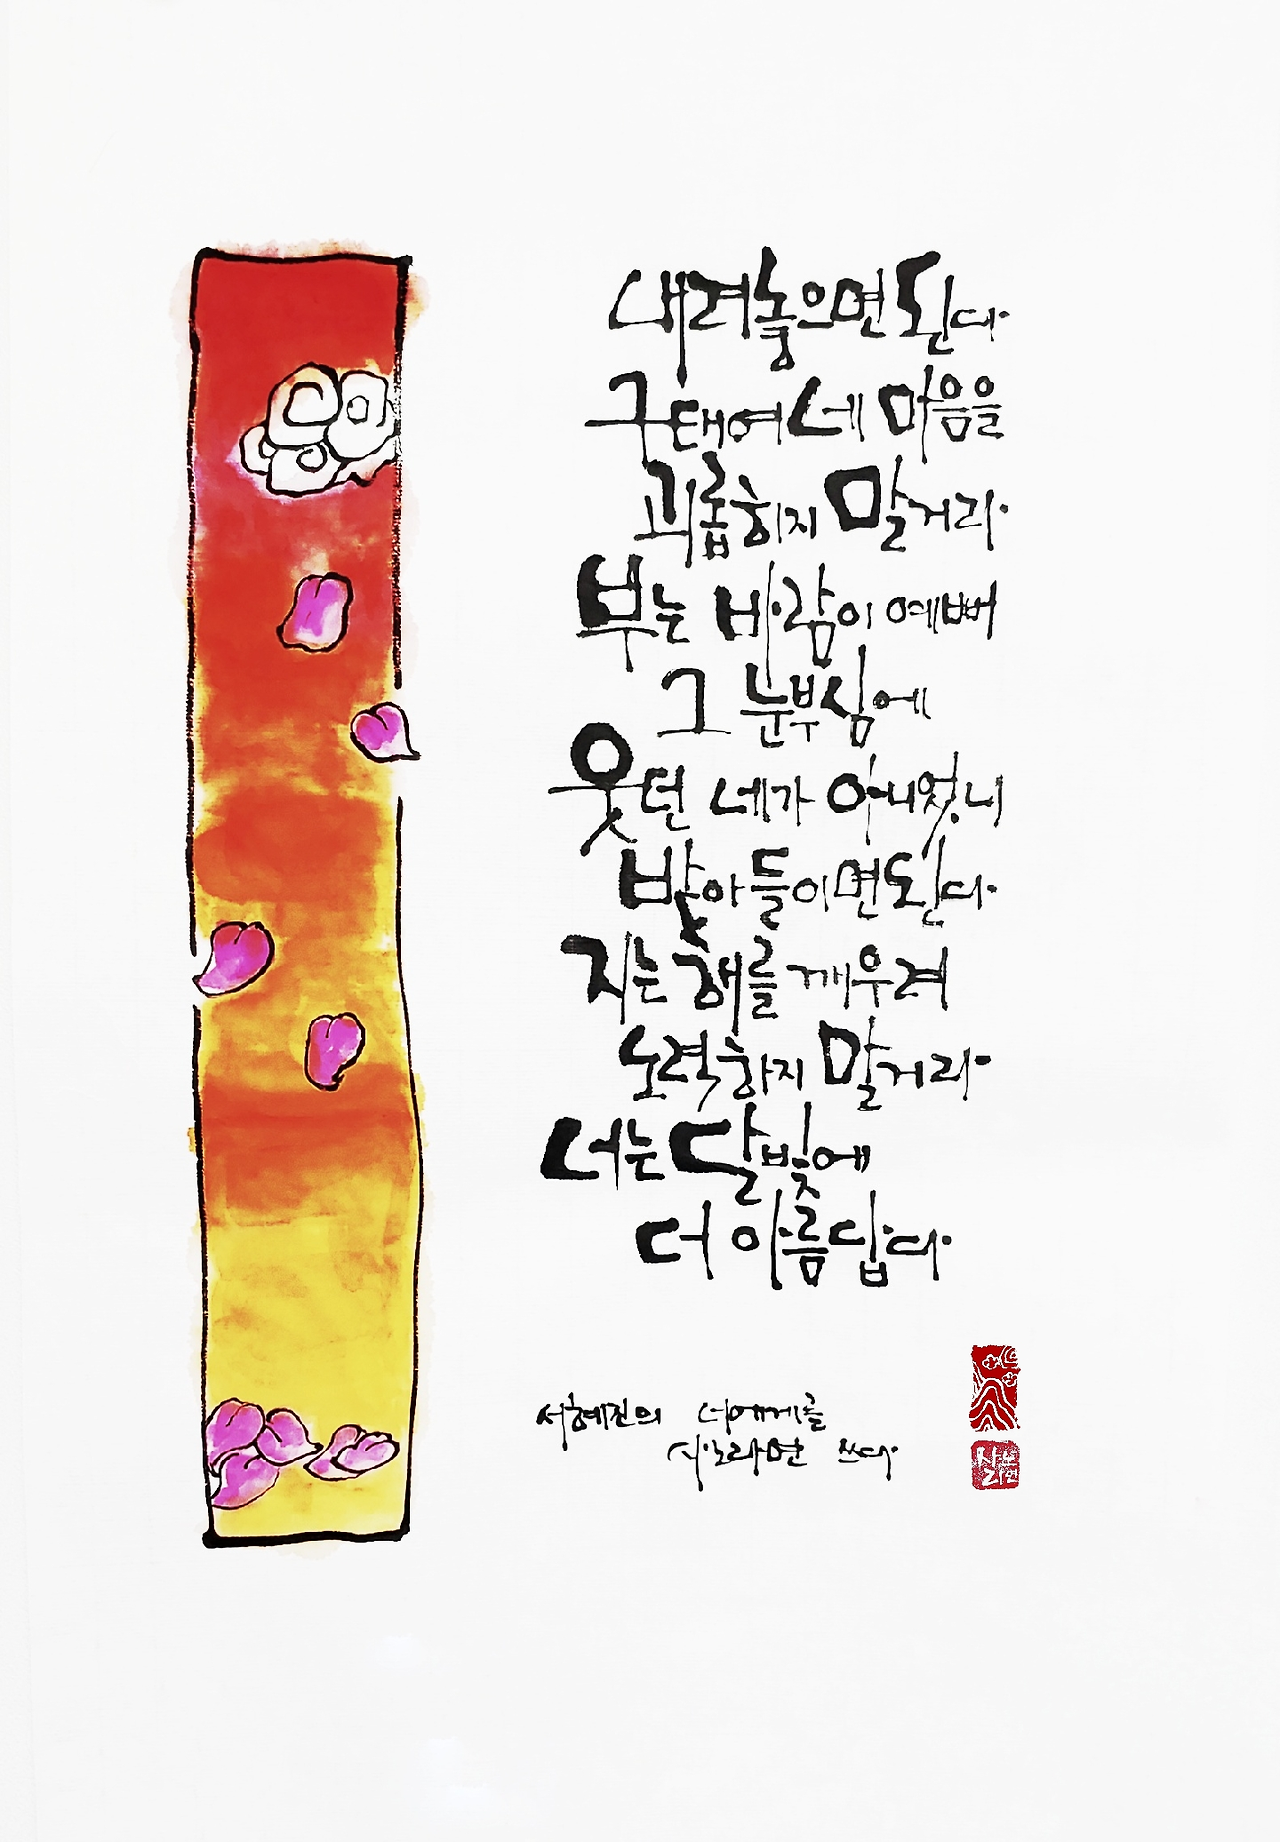 내려놓으면 된다
구태여 네 마음을
괴롭히지 말거라
부는 바람이 예뻐
그 눈부심에
웃던 네가 아니었니
받아들이면 된다
지는 해를 깨우려
노력하지 말거라
너는 달빛에
더 아름답다
서혜진의 너에게를
시노라면 쓰다